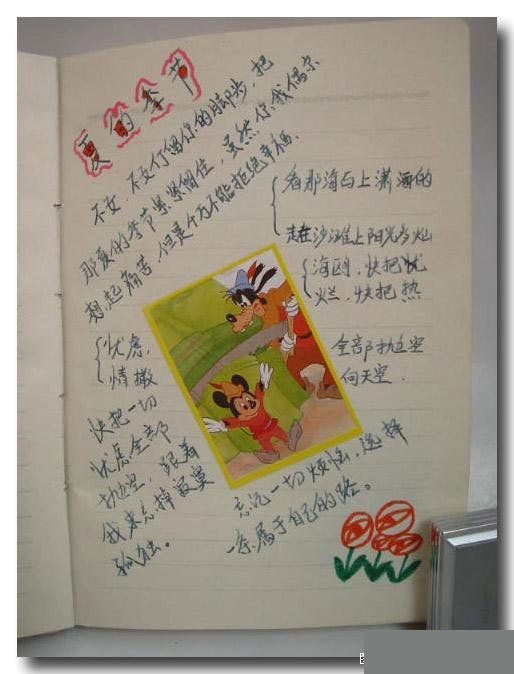 夏的季节
不要,不要停留你的脚步,把
那夏的季节紧紧留住,虽然你我偶尔
想起痛苦,但是千万不能拒绝幸福。
看那海鸥上潇洒的
走在沙滩上阳光当灿
海鸥,快把忧
烂,快把热
忧虑,
情撒
全部抛近空
向天空
快把一切
忧虑全部
抛近空,跟着
我来忘掉寂寞
孤独。
忘记一切烦恼,选择
一条属于自己的路。